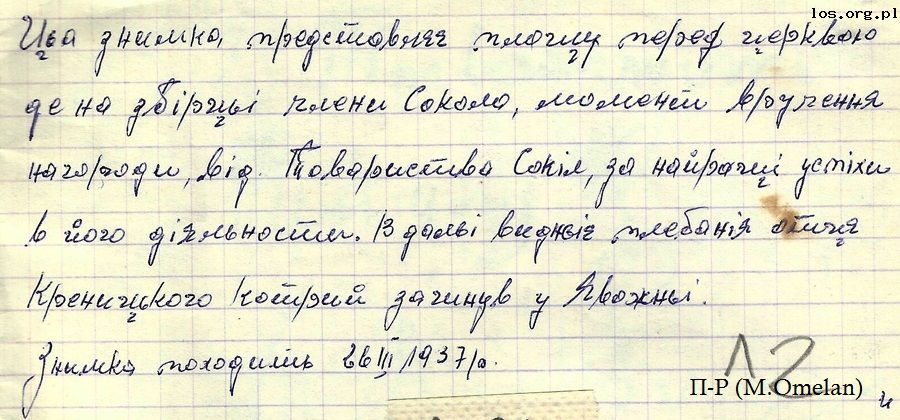 los.org.pl
Цьа знимка, представляє площу перед церквою
де на збірці члени Сокола, момент вручення
нагороди, від. Товариства Сокіл, за найрачі успіхи
в його діяльности. В дальі видніє плебанія отця
Креницького котрий загинув у Явожньі.
Знимка походить 26 III 1937 р.
12
П-Р (M.Omelan)